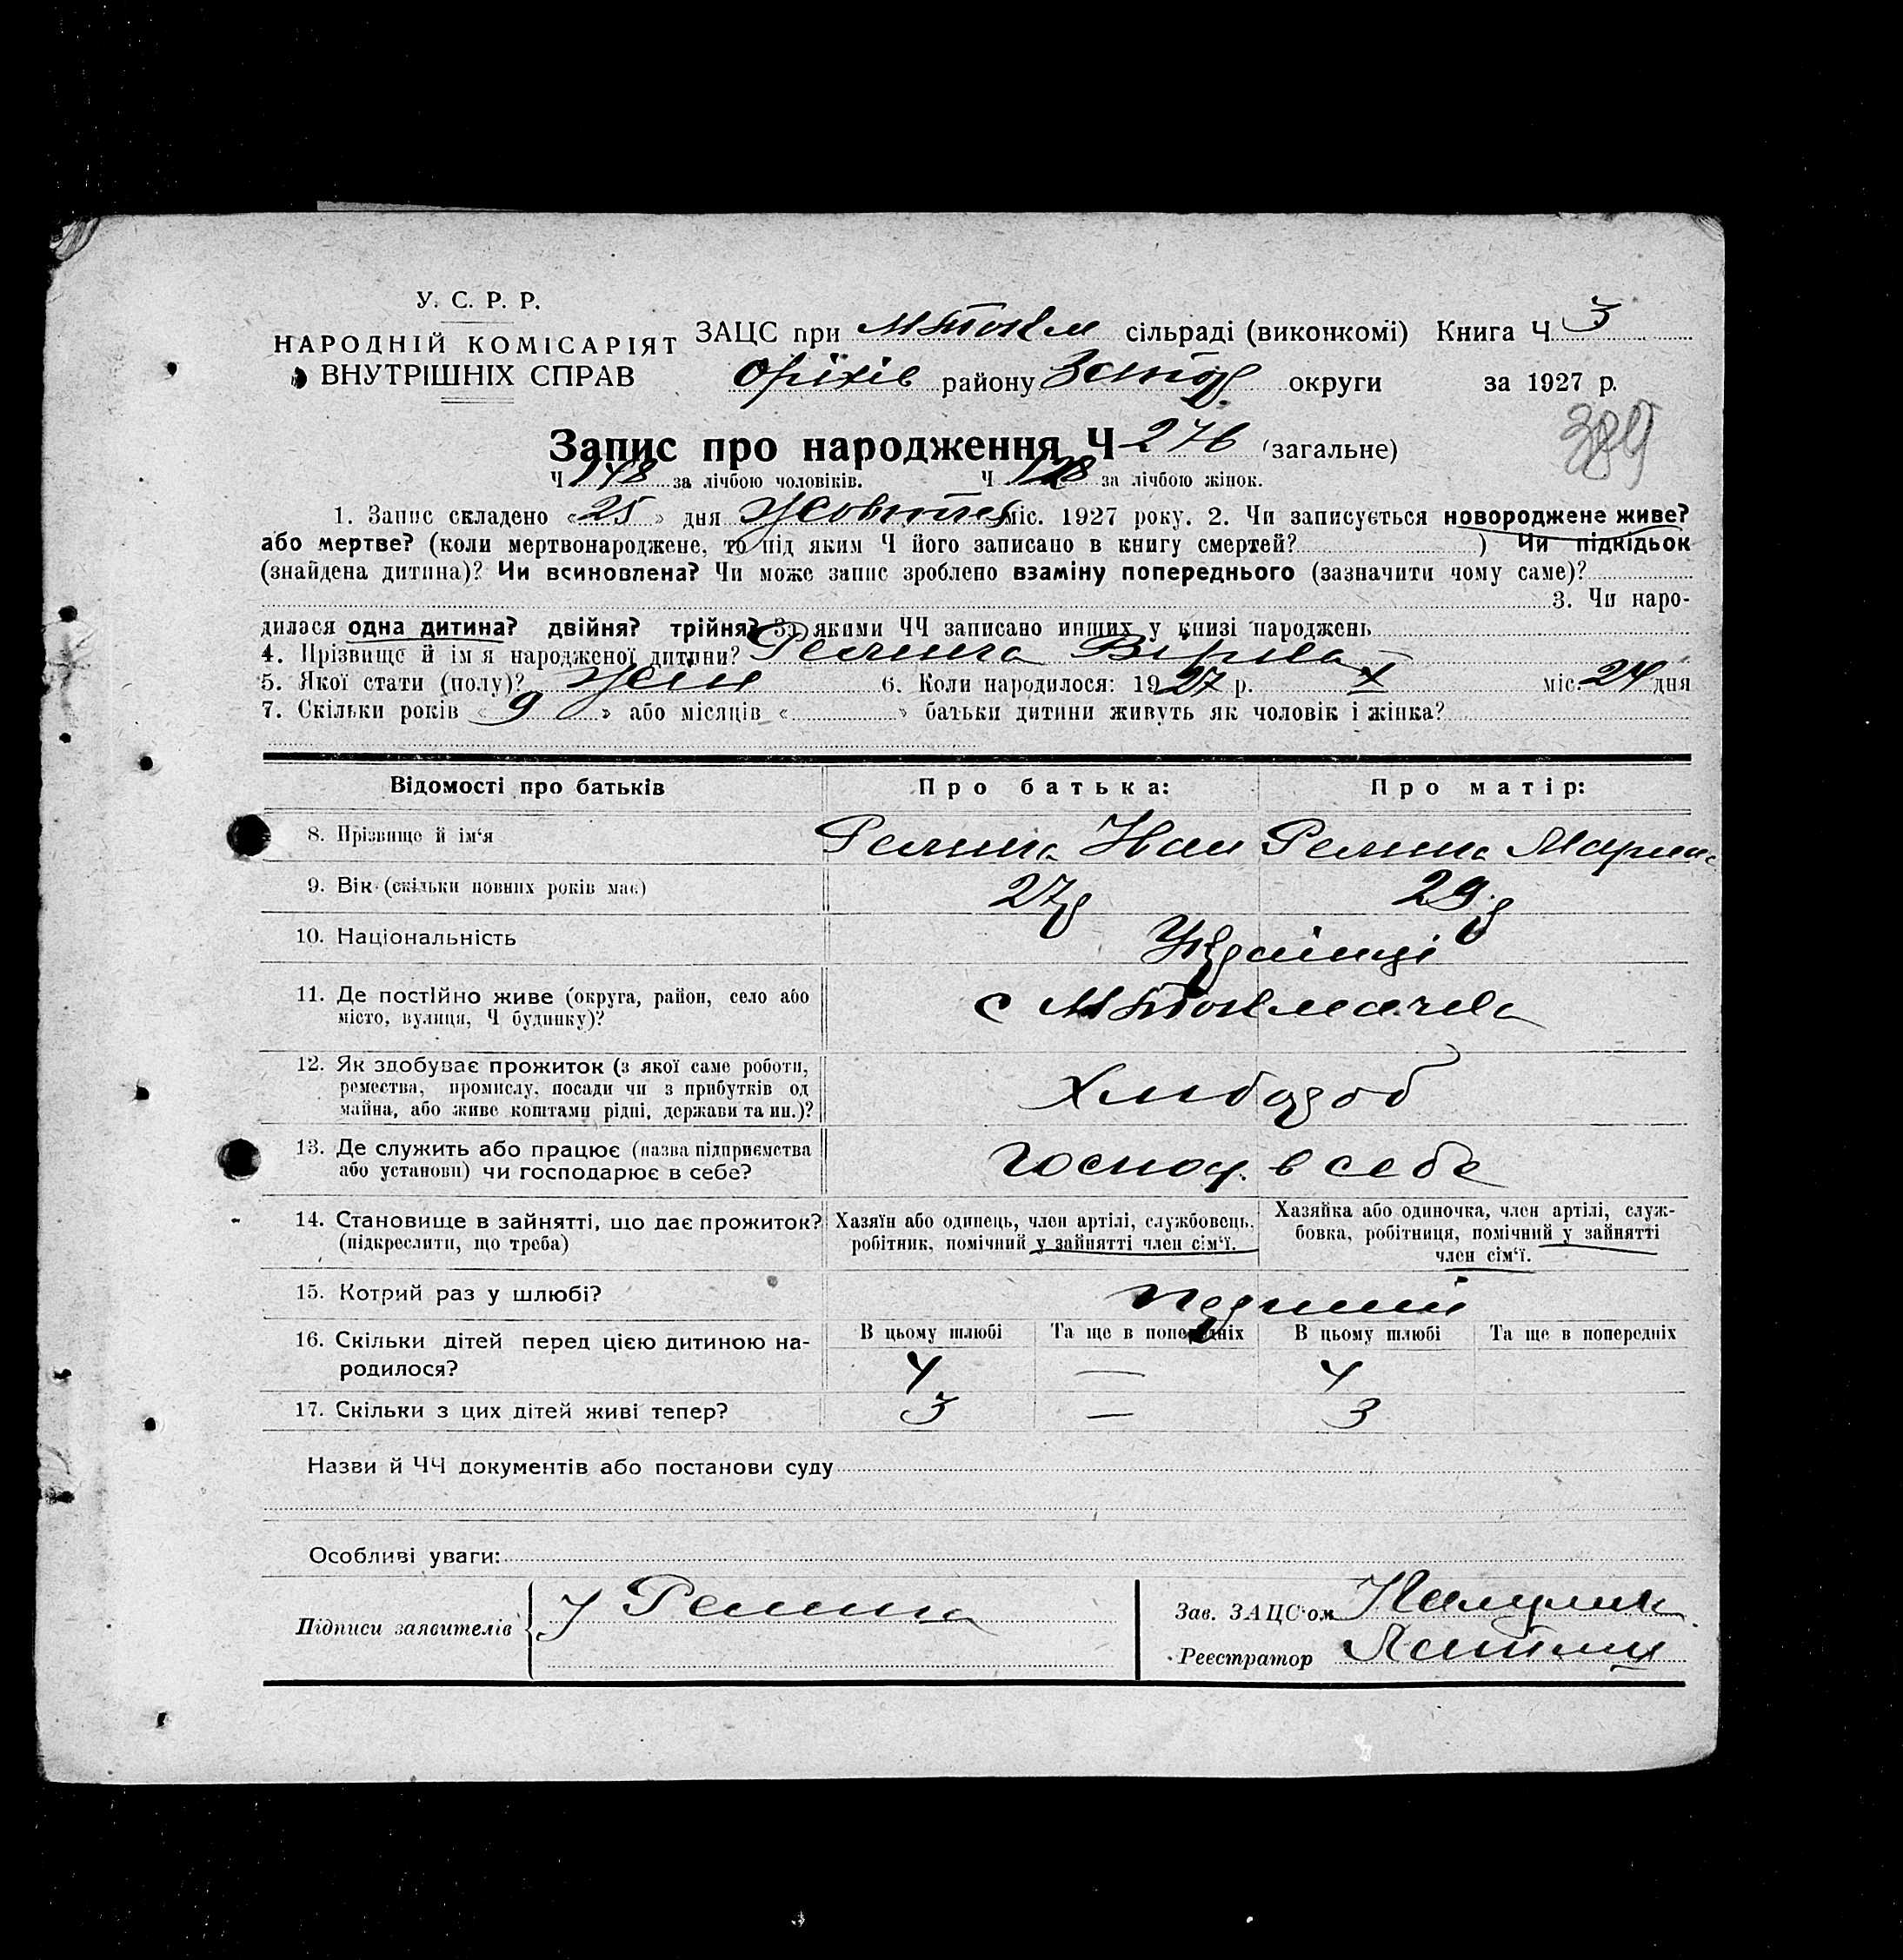 У. С. Р. Р.
НАРОДНІЙ КОМІСАРІЯТ
ВНУТРІШНІХ СПРАВ
ЗАЦС при М Токм сільраді (виконкомі) Книга Ч. 3
Оріхів району Запор. округи за 1927 р.
389
Запис про народження Ч 276 (загальне)
Ч 148 за лічбою чоловіків. Ч 128 за лічбою жінок.
1. Запис складено «25» дня Жовтня міс. 1927 року. 2. Чи записується новороджене живе?
або мертве? (коли мертвонароджене, то під яким Ч його записано в книгу смертей? ) Чи підкідьок
(знайдена дитина)? Чи всиновлена? Чи може запис зроблено взаміну попереднього (зазначити чому саме)?
3. Чи наро-
дилася одна дитина? двійня? трійня? За якими ЧЧ записано инших у книзі народжень
4. Прізвище й ім'я народженої дитини?
5. Якої стати (полу)? жін 6. Коли народилося: 1927 р. X міс. 24 дня
7. Скільки років «9» або місяців « » батьки дитини живуть як чоловік і жінка?
Відомості про батьків Про батька: Про матір:
8. Прізвище й ім‘я
9. Вік (скільки повних років має) 27 р 29 р
10. Національність Українці
11. Де постійно живе (округа, район, село або
місто, вулиця, Ч будинку)? с М Токмачка
12. Як здобуває прожиток (з якої саме роботи,
ремества, промислу, посади чи з прибутків од
майна, або живе коштами рідні, держави та ин.)? Хлібороб
13. Де служить або працює (назва підприємства
або установи) чи господарює в себе? господ. в себе
14. Становище в зайнятті, що дає прожиток?
(підкреслити, що треба)
Хазяїн або одинець, член артілі, службовець,
робітник, помічний у зайнятті член сім‘ї.
Хазяйка або одиночка, член артілі, служ-
бовка, робітниця, помічний у зайнятті
член сім‘ї.
15. Котрий раз у шлюбі? перший
16. Скільки дітей перед цією дитиною на-
родилося?
В цьому шлюбі Та ще в попередніх В цьому шлюбі Та ще в попередніх
4 — 4
17. Скільки з цих дітей живі тепер? 3 — 3
Назви й ЧЧ документів або постанови суду
Особливі уваги:
Підписи заявителів
Зав. ЗАЦС‘ом
Реєстратор